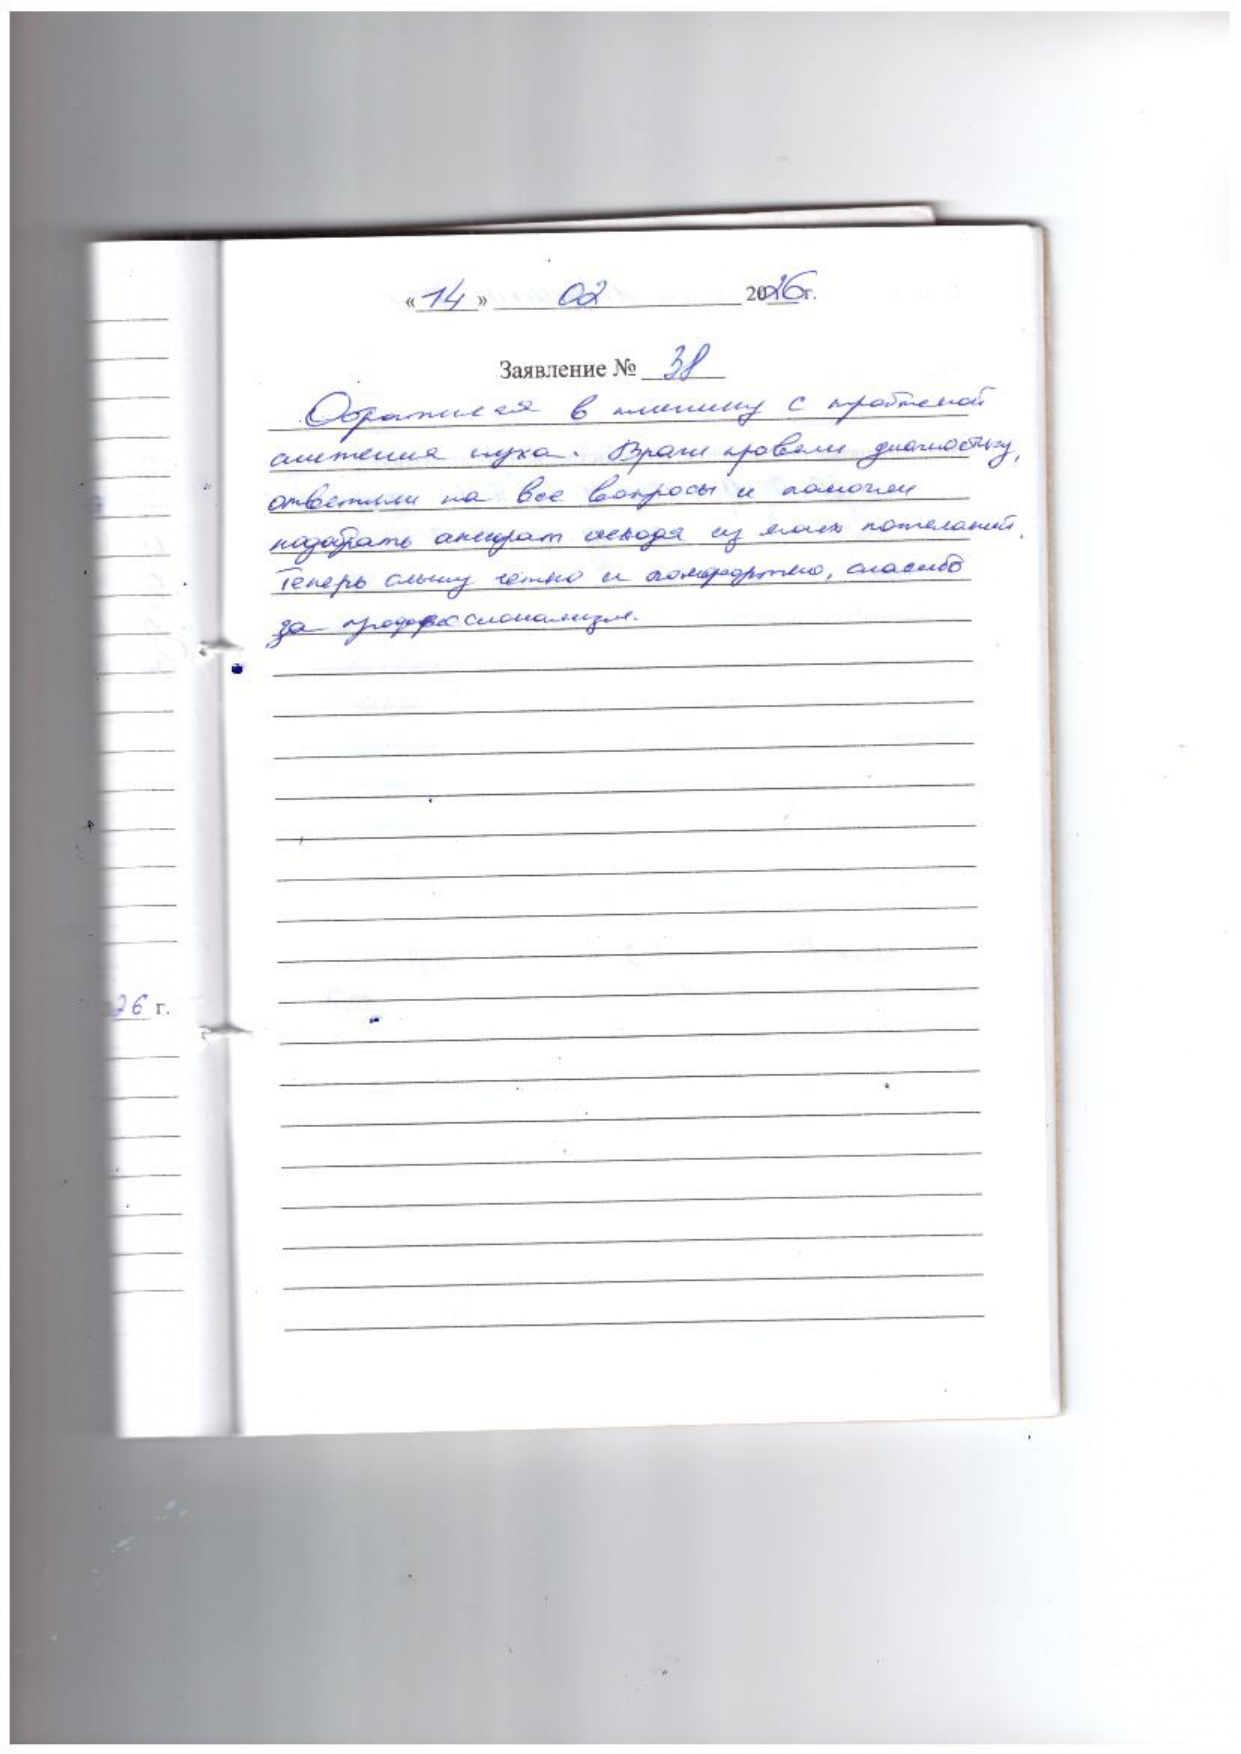 «14» 02 2026 г.
Заявление № 38
Обратился в клинику с проблемой
снижения слуха. Врачи провели диагностику,
ответили на все вопросы и помогли
подобрать аппарат исходя из моих пожеланий.
Теперь слышу чётко и комфортно, спасибо
за профессионализм.
26 г.